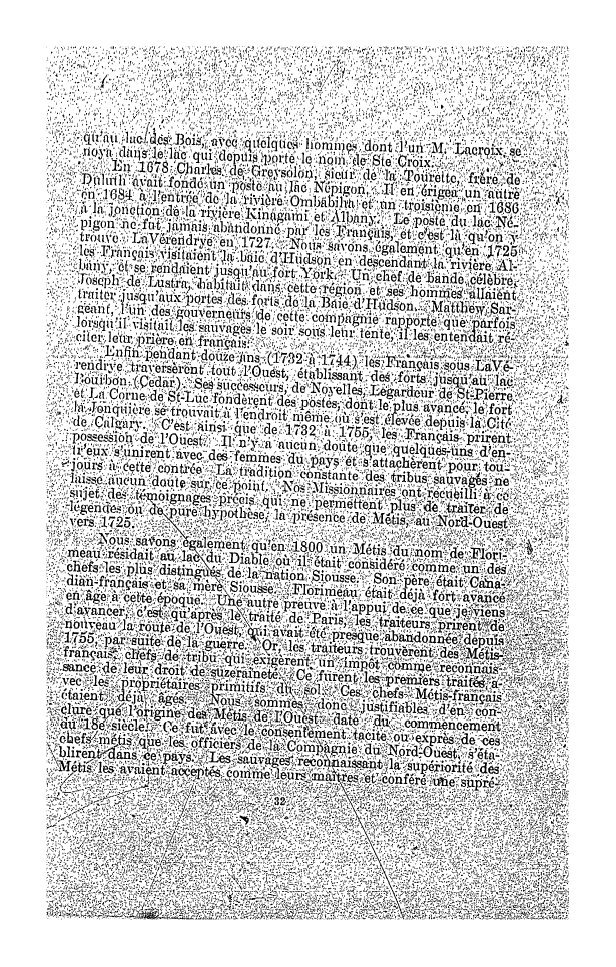 qu'au lac des Bois, avec quelques hommes dont l'un M. Lacroix, se
noya dans le lac qui depuis porte le nom de Ste Croix.
En 1678 Charles de Greysolon, sieur de la Tourette, frère de
Duluth avait fondé un poste au lac Népigon. Il en érigea un autre
en 1684 à l'entrée de la rivière Ombabiha et un troisième en 1686
à la jonction de la rivière Kinagami et Albany. Le poste du lac Né-
pigon ne fut jamais abandonné par les Français, et c'est là qu'on y
trouve LaVérendrye en 1727. Nous savons également qu'en 1725
les Français visitaient la baie d'Hudson en descendant la rivière Al-
bany, et se rendaient jusqu'au fort York. Un chef de bande célèbre,
Joseph de Lustra, habitait dans cette région et ses hommes allaient
traiter jusqu'aux portes des forts de la Baie d'Hudson. Matthew Sar-
geant, l'un des gouverneurs de cette compagnie rapporte que parfois
lorsqu'il visitait les sauvages le soir sous leur tente, il les entendait ré-
citer leur prière en français.
Enfin pendant douze ans (1732 à 1744) les Français sous LaVé-
rendrye traversèrent tout l'Ouest, établissant des forts jusqu'au lac
Bourbon (Cedar). Ses successeurs, de Noyelles, Légardeur de St-Pierre
et La Corne de St-Luc fondèrent des postes, dont le plus avancé, le fort
la Jonquière se trouvait à l'endroit même où s'est élevée depuis la Cité
de Calgary. C'est ainsi que de 1732 à 1755, les Français prirent
possession de l'Ouest. Il n'y a aucun doute que quelques-uns d'en-
tr'eux s'unirent avec des femmes du pays et s'attachèrent pour tou-
jours à cette contrée. La tradition constante des tribus sauvages ne
laisse aucun doute sur ce point. Nos Missionnaires ont recueilli à ce
sujet des témoignages précis qui ne permettent plus de traiter de
légendes ou de pure hypothèse, la présence de Métis, au Nord-Ouest
vers 1725.
Nous savons également qu'en 1800 un Métis du nom de Flori-
meau résidait au lac du Diable où il était considéré comme un des
chefs les plus distingués de la nation Siousse. Son père était Cana-
dian-français et sa mère Siousse. Florimeau était déjà fort avancé
en âge à cette époque. Une autre preuve à l'appui de ce que je viens
d'avancer, c'est qu'après le traité de Paris, les traiteurs prirent de
nouveau la route de l'Ouest, qui avait été presque abandonnée depuis
1755, par suite de la guerre. Or, les traiteurs trouvèrent des Métis-
français, chefs de tribu qui exigèrent un impôt comme reconnais-
sance de leur droit de suzeraineté. Ce furent les premiers traités a-
vec les propriétaires primitifs du sol. Ces chefs Métis-français
étaient déjà âgés. Nous sommes donc justifiables d'en con-
clure que l'origine des Métis de l'Ouest date du commencement
du 18e siècle. Ce fut avec le consentement tacite ou exprès de ces
chefs métis que les officiers de la Compagnie du Nord-Ouest, s'éta-
blirent dans ce pays. Les sauvages reconnaissant la supériorité des
Métis les avaient acceptés comme leurs maîtres et conféré une supré-
32